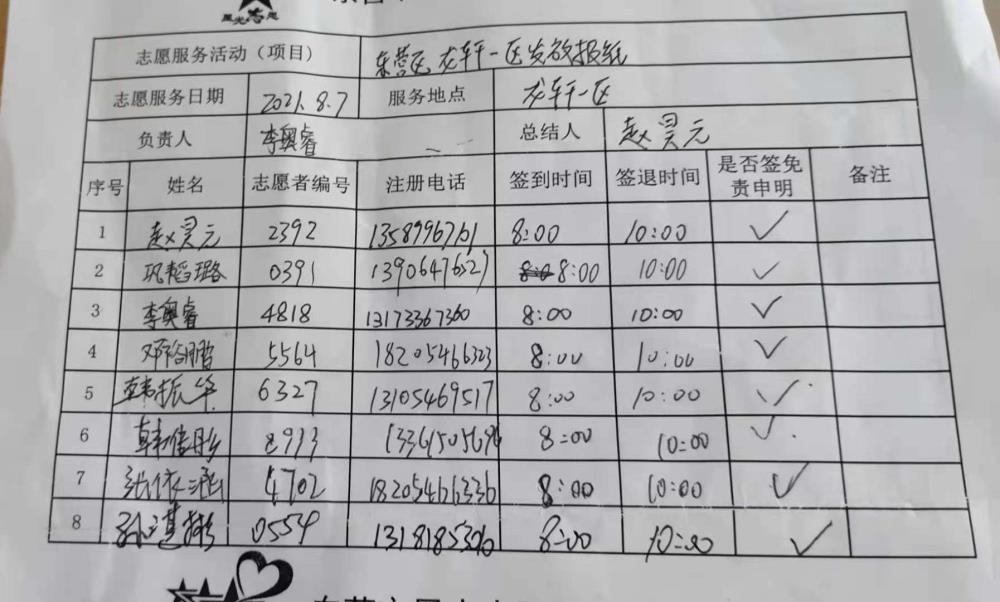 星光志愿
志愿服务活动（项目） 东营区龙轩一区发放报纸
志愿服务日期 2021.8.7 服务地点 龙轩一区
负责人 李奥睿 总结人 赵昊元
序号 姓名 志愿者编号 注册电话 签到时间 签退时间 是否签免责申明 备注
1 赵昊元 2392 13589967761 8:00 10:00 ✓
2 巩韬璐 0391 13906476527 8:00 10:00 ✓
3 李奥睿 4818 13173367360 8:00 10:00 ✓
4 5564 18205466323 8:00 10:00 ✓
5 韩振华 6327 13105469517 8:00 10:00 ✓
6 8913 13361505696 8:00 10:00 ✓
7 张依涵 4702 18205466336 8:00 10:00 ✓
8 0554 8:00 10:00 ✓